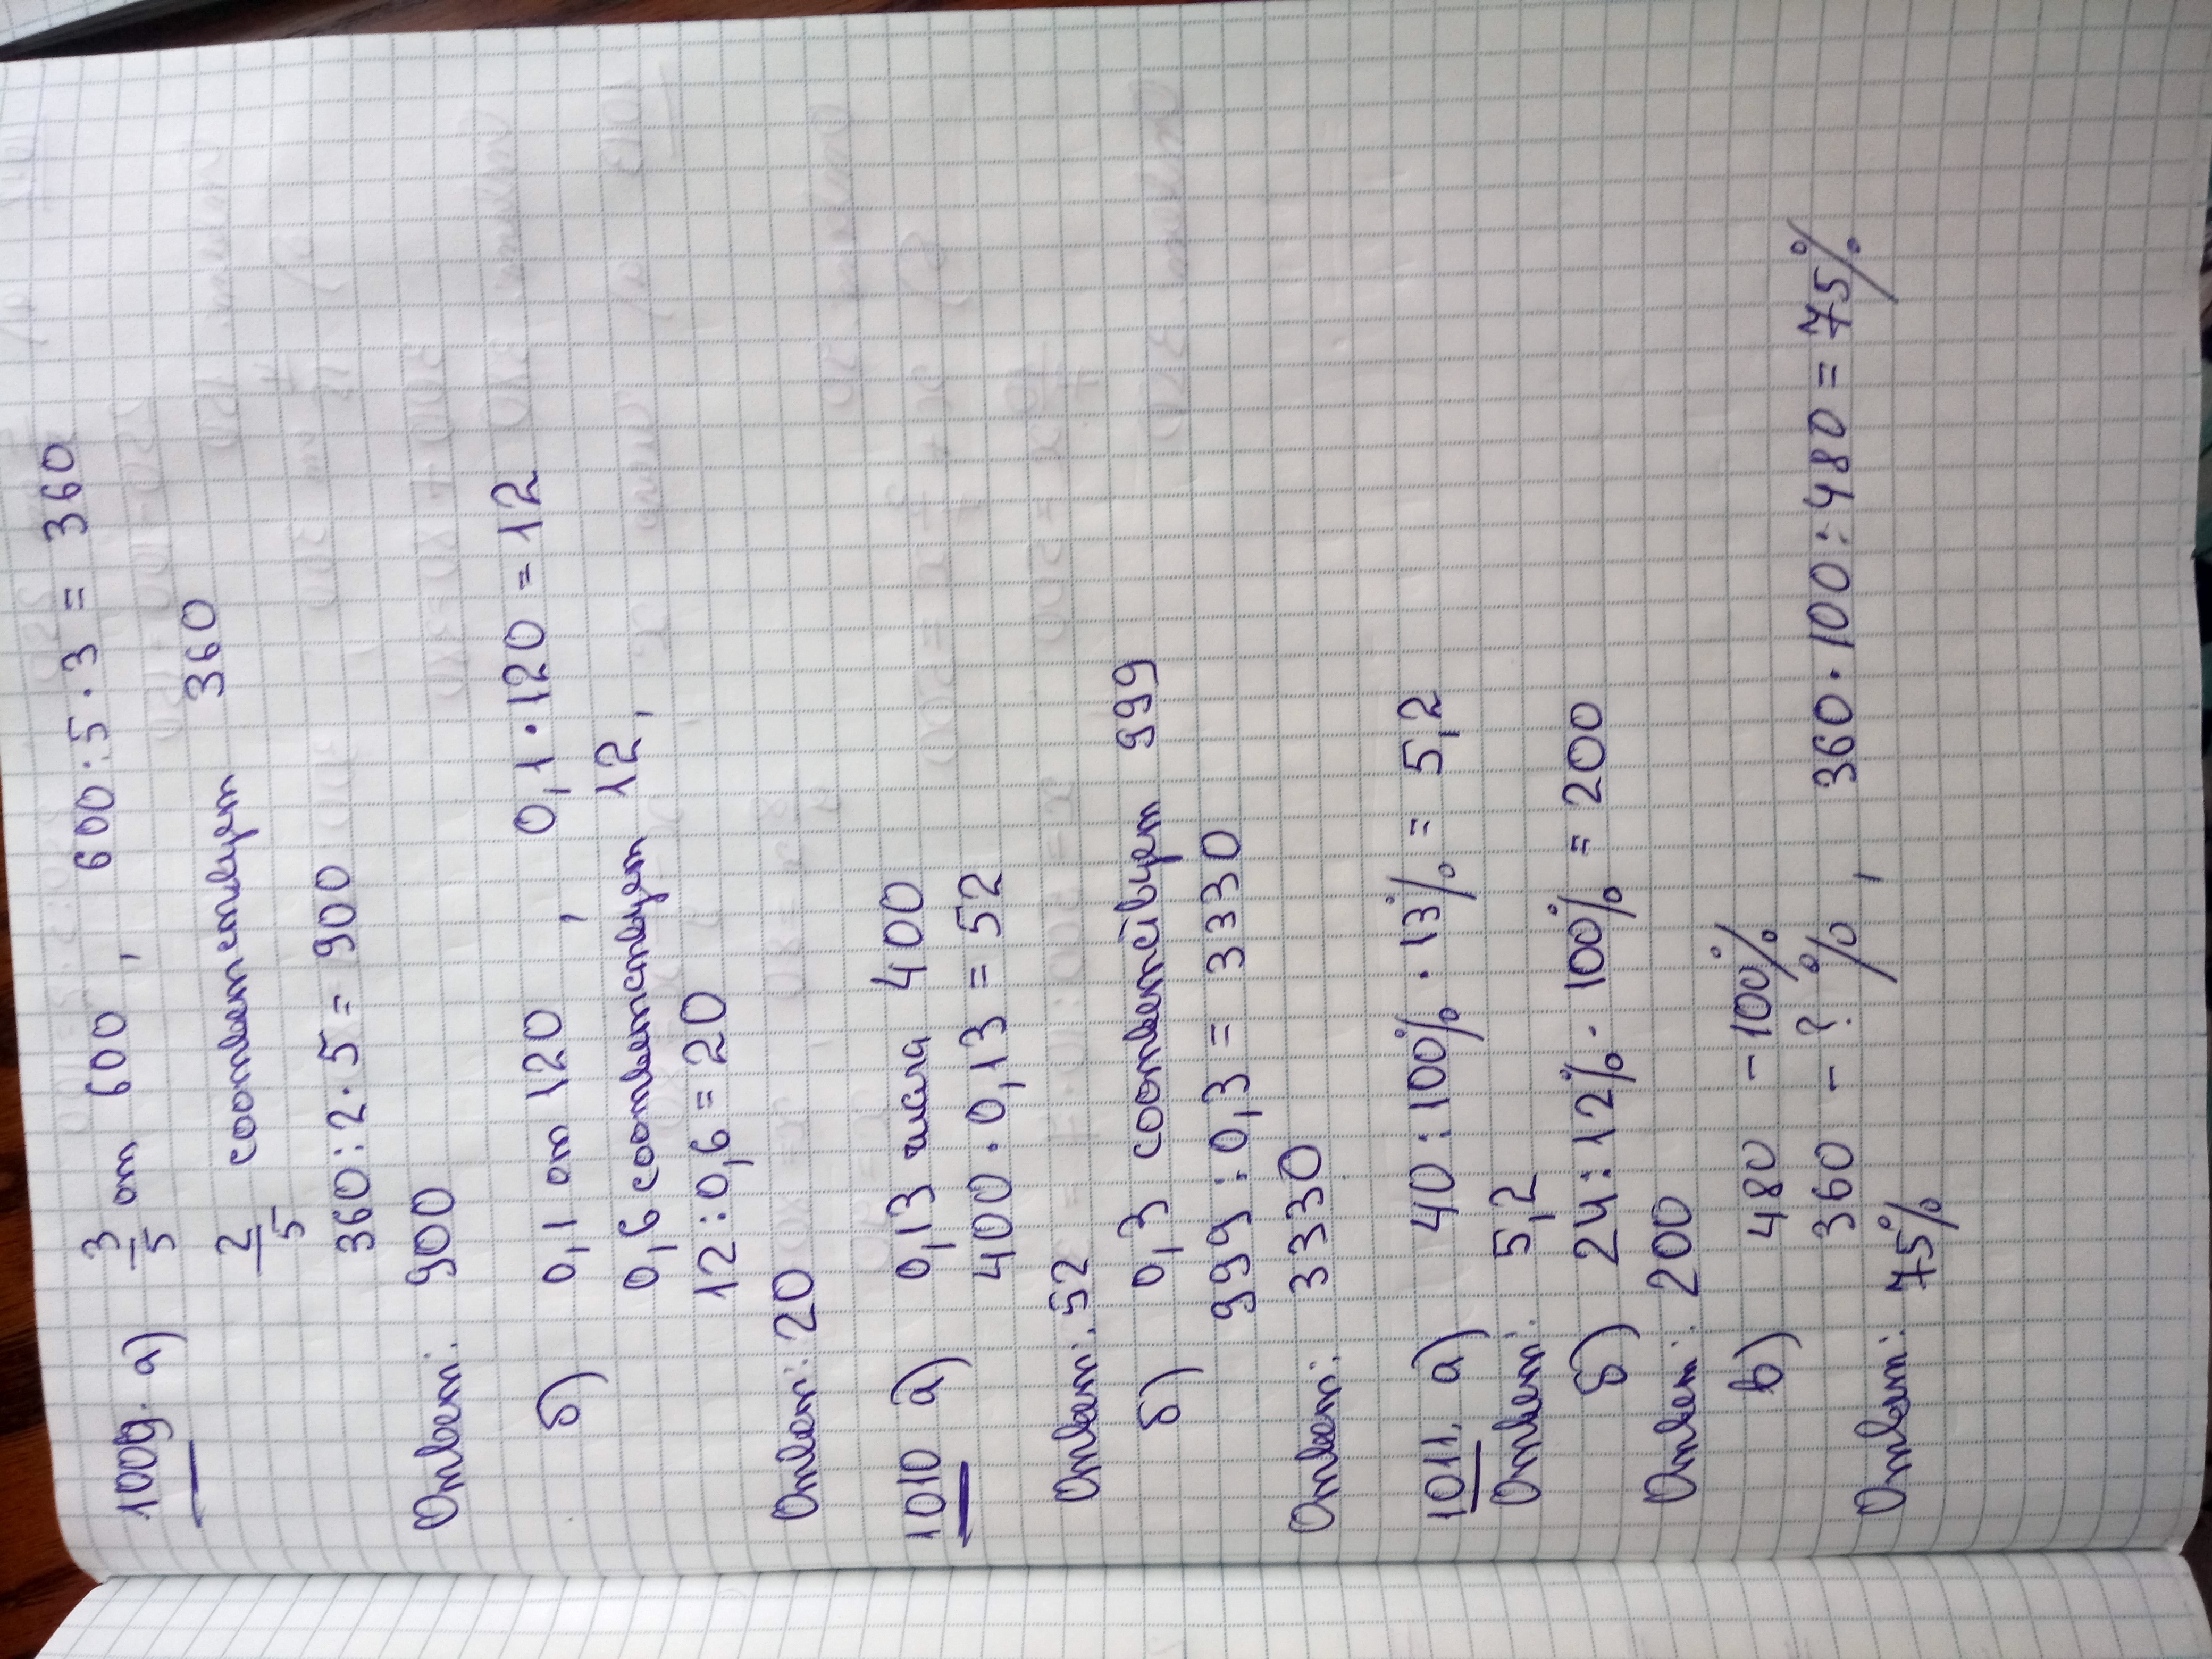 1009. а) 3/5 от 600, 600:5·3 = 360
2/5 соответствует 360
360:2·5 = 900
Ответ: 900
б) 0,1 от 120, 0,1·120 = 12
0,6 соответствует 12,
12:0,6 = 20
Ответ: 20
1010 а) 0,13 числа 400
400·0,13 = 52
Ответ: 52
б) 0,3 соответствует 999
999:0,3 = 3330
Ответ: 3330
1011. а) 40:100%·13% = 5,2
Ответ: 5,2
б) 24:12%·100% = 200
Ответ: 200
в) 480 – 100%
360 – ? %, 360·100:480 = 75%
Ответ: 75%